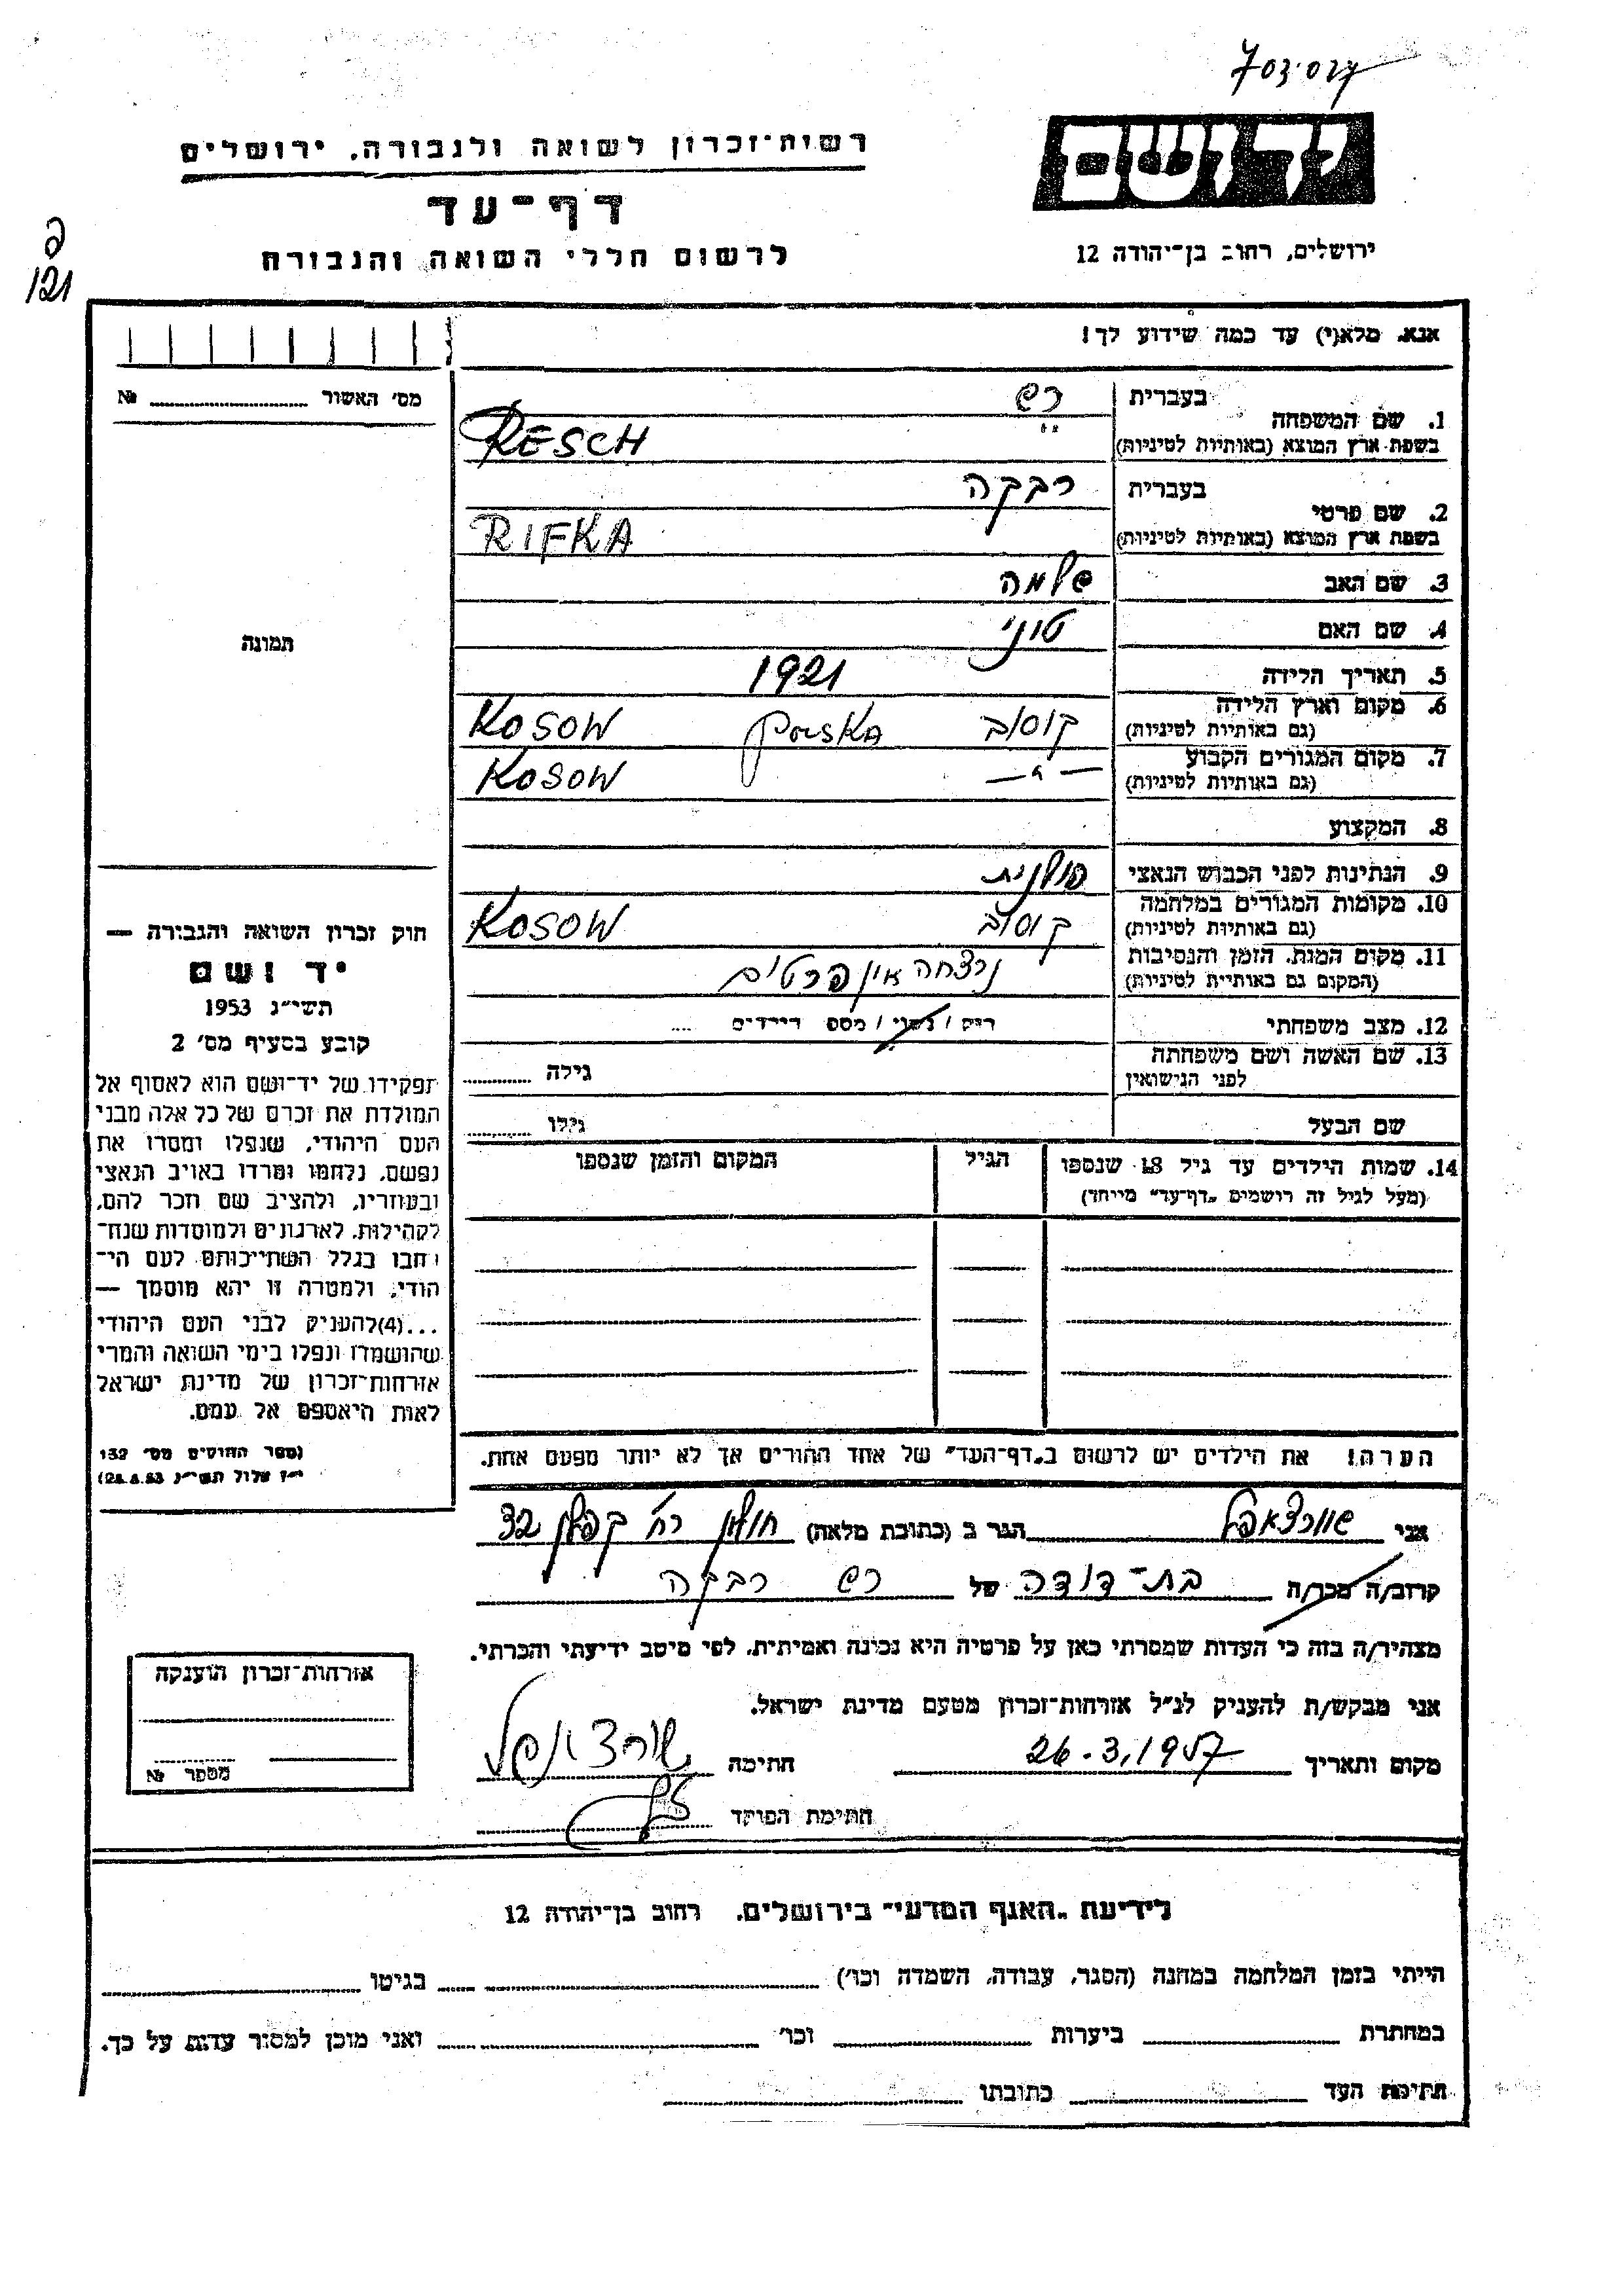 703.027
רשות־זכרון לשואה ולגבורה, ירושלים
יד ושם
דף־עד
לרשום חללי השואה והגבורה
ירושלים, רחוב בן־יהודה 12
121
אנא, מלא(י) עד כמה שידוע לך!
מס' האשור № 
1. שם המשפחה בעברית רש
בשפת ארץ המוצא (באותיות לטיניות) RESCH
2. שם פרטי בעברית רבקה
בשפת ארץ המוצא (באותיות לטיניות) RIFKA
3. שם האב שלמה
4. שם האם טוני
תמונה
5. תאריך הלידה 1921
6. מקום וארץ הלידה קוסוב Polska KOSOW
(גם באותיות לטיניות)
7. מקום המגורים הקבוע — " — KOSOW
(גם באותיות לטיניות)
8. המקצוע
9. הנתינות לפני הכבוש הנאצי פולנית
10. מקומות המגורים במלחמה קוסוב KOSOW
(גם באותיות לטיניות)
11. מקום המות, הזמן והנסיבות נרצחה אין פרטים
(המקום גם באותיות לטיניות)
12. מצב משפחתי רוק / נשוי / מספר הילדים ....
13. שם האשה ושם משפחתה גילה
לפני הנישואין
שם הבעל גילו
14. שמות הילדים עד גיל 18 שנספו הגיל המקום והזמן שנספו
(מעל לגיל זה רושמים "דף־עד" מייחד)
חוק זכרון השואה והגבורה —
יד ושם
תשי"ג 1953
קובע בסעיף מס' 2
תפקידו של יד־ושם הוא לאסוף אל
המולדת את זכרם של כל אלה מבני
העם היהודי, שנפלו ומסרו את
נפשם, נלחמו ומרדו באויב הנאצי
ובעוזריו, ולהציב שם וזכר להם,
לקהילות, לארגונים ולמוסדות שנח־
רבו בגלל השתייכותם לעם הי־
הודי, ולמטרה זו יהא מוסמך —
...(4)להעניק לבני העם היהודי
שהושמדו ונפלו בימי השואה והמרי
אזרחות־זכרון של מדינת ישראל
לאות היאספם אל עמם.
(ספר החוקים מס' 132
י"ז אלול תשי"ג 28.8.53)
הערה! את הילדים יש לרשום ב"דף־העד" של אחד ההורים אך לא יותר מפעם אחת.
אני שוורצאפל הגר ב (כתובת מלאה) חולון רח' קפלן 32
קרוב/ה מכר/ה בת־דודה של רש רבקה
מצהיר/ה בזה כי העדות שמסרתי כאן על פרטיה היא נכונה ואמיתית, לפי מיטב ידיעתי והכרתי.
אני מבקש/ת להעניק לנ"ל אזרחות־זכרון מטעם מדינת ישראל.
מקום ותאריך 26.3.1957 חתימה שורצאפל
חתימת הפוקד
אזרחות־זכרון הוענקה
מספר №
לידיעת "האגף המדעי" בירושלים, רחוב בן־יהודה 12
הייתי בזמן המלחמה במחנה (הסגר, עבודה, השמדה וכו') בגיטו
במחתרת ביערות וכו' ואני מוכן למסור עדות על כך.
חתימת העד כתובתו